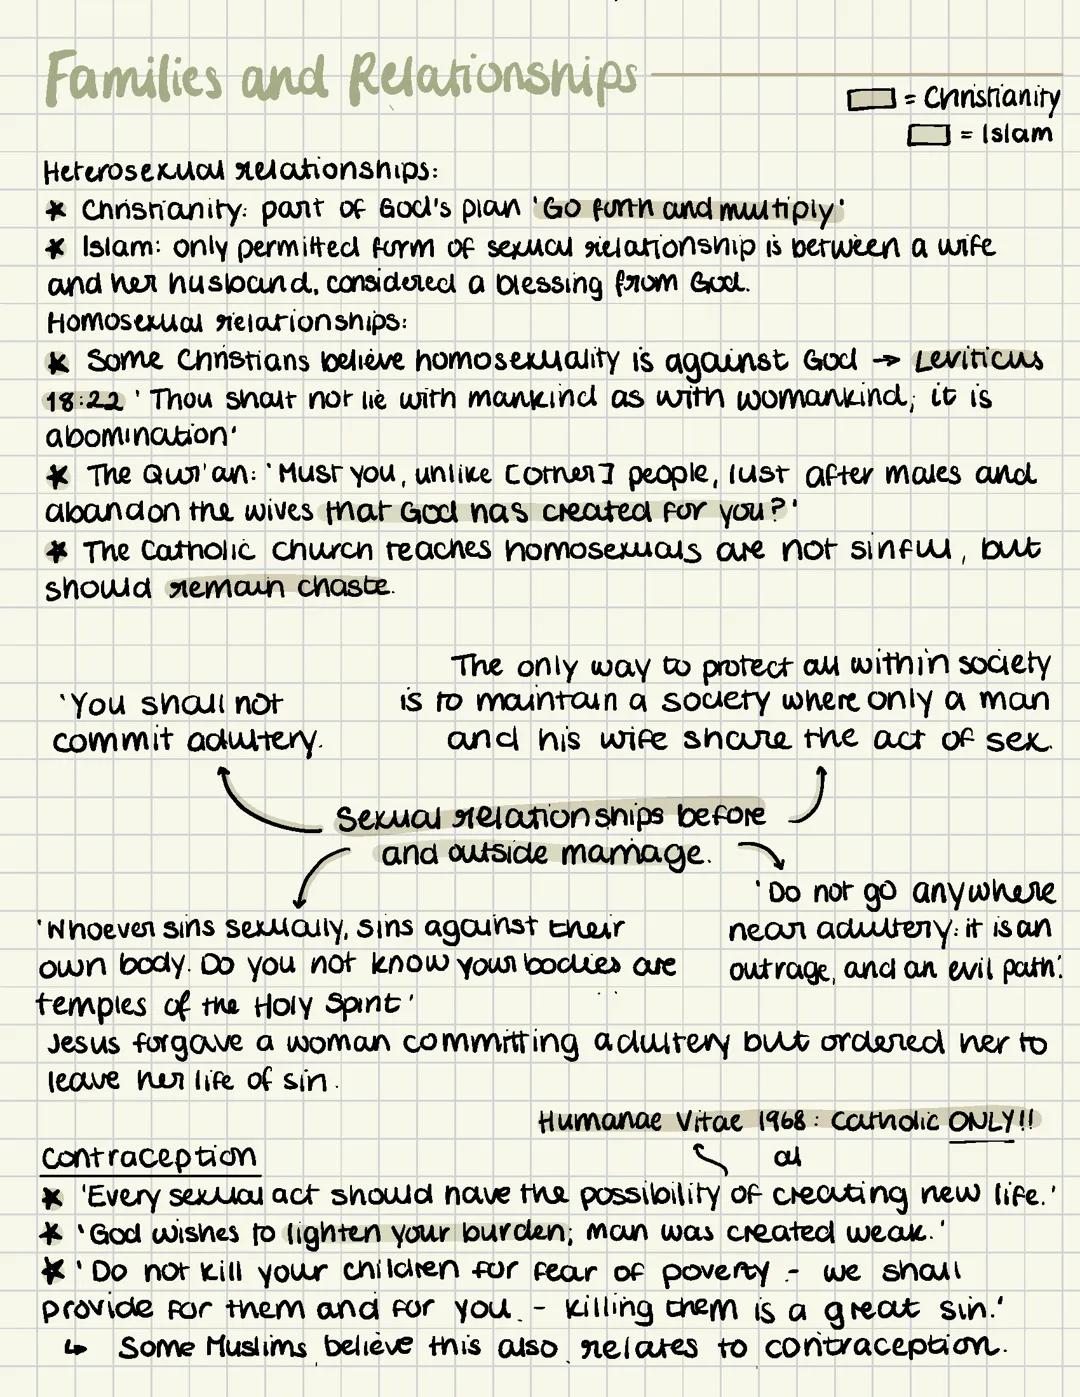 Families and Relationships
= Christianity
= Islam
Heterosexual relationships:
* Christianity: part of God's plan 'Go forth and multiply'
* Islam: only permitted form of sexual relationship is between a wife
and her husband, considered a blessing from God.
Homosexual relationships:
* Some Christians believe homosexuality is against God → Leviticus
18:22 'Thou shalt not lie with mankind as with womankind; it is
abomination'
* The Qur'an: 'Must you, unlike [other] people, lust after males and
abandon the wives that God has created for you?'
* The Catholic Church teaches homosexuals are not sinful, but
should remain chaste.
'You shall not
commit adultery.
The only way to protect all within society
is to maintain a society where only a man
and his wife share the act of sex.
Sexual relationships before
and outside marriage.
'Whoever sins sexually, sins against their
own body. Do you not know your bodies are
temples of the Holy Spirit'
'Do not go anywhere
near adultery: it is an
outrage, and an evil path.'
Jesus forgave a woman committing adultery but ordered her to
leave her life of sin.
Humanae Vitae 1968: Catholic ONLY!!
Contraception
* 'Every sexual act should have the possibility of creating new life.'
* 'God wishes to lighten your burden; man was created weak.'
* 'Do not kill your children for fear of poverty - we shall
provide for them and for you. - killing them is a great sin.'
↳ Some Muslims believe this also relates to contraception.